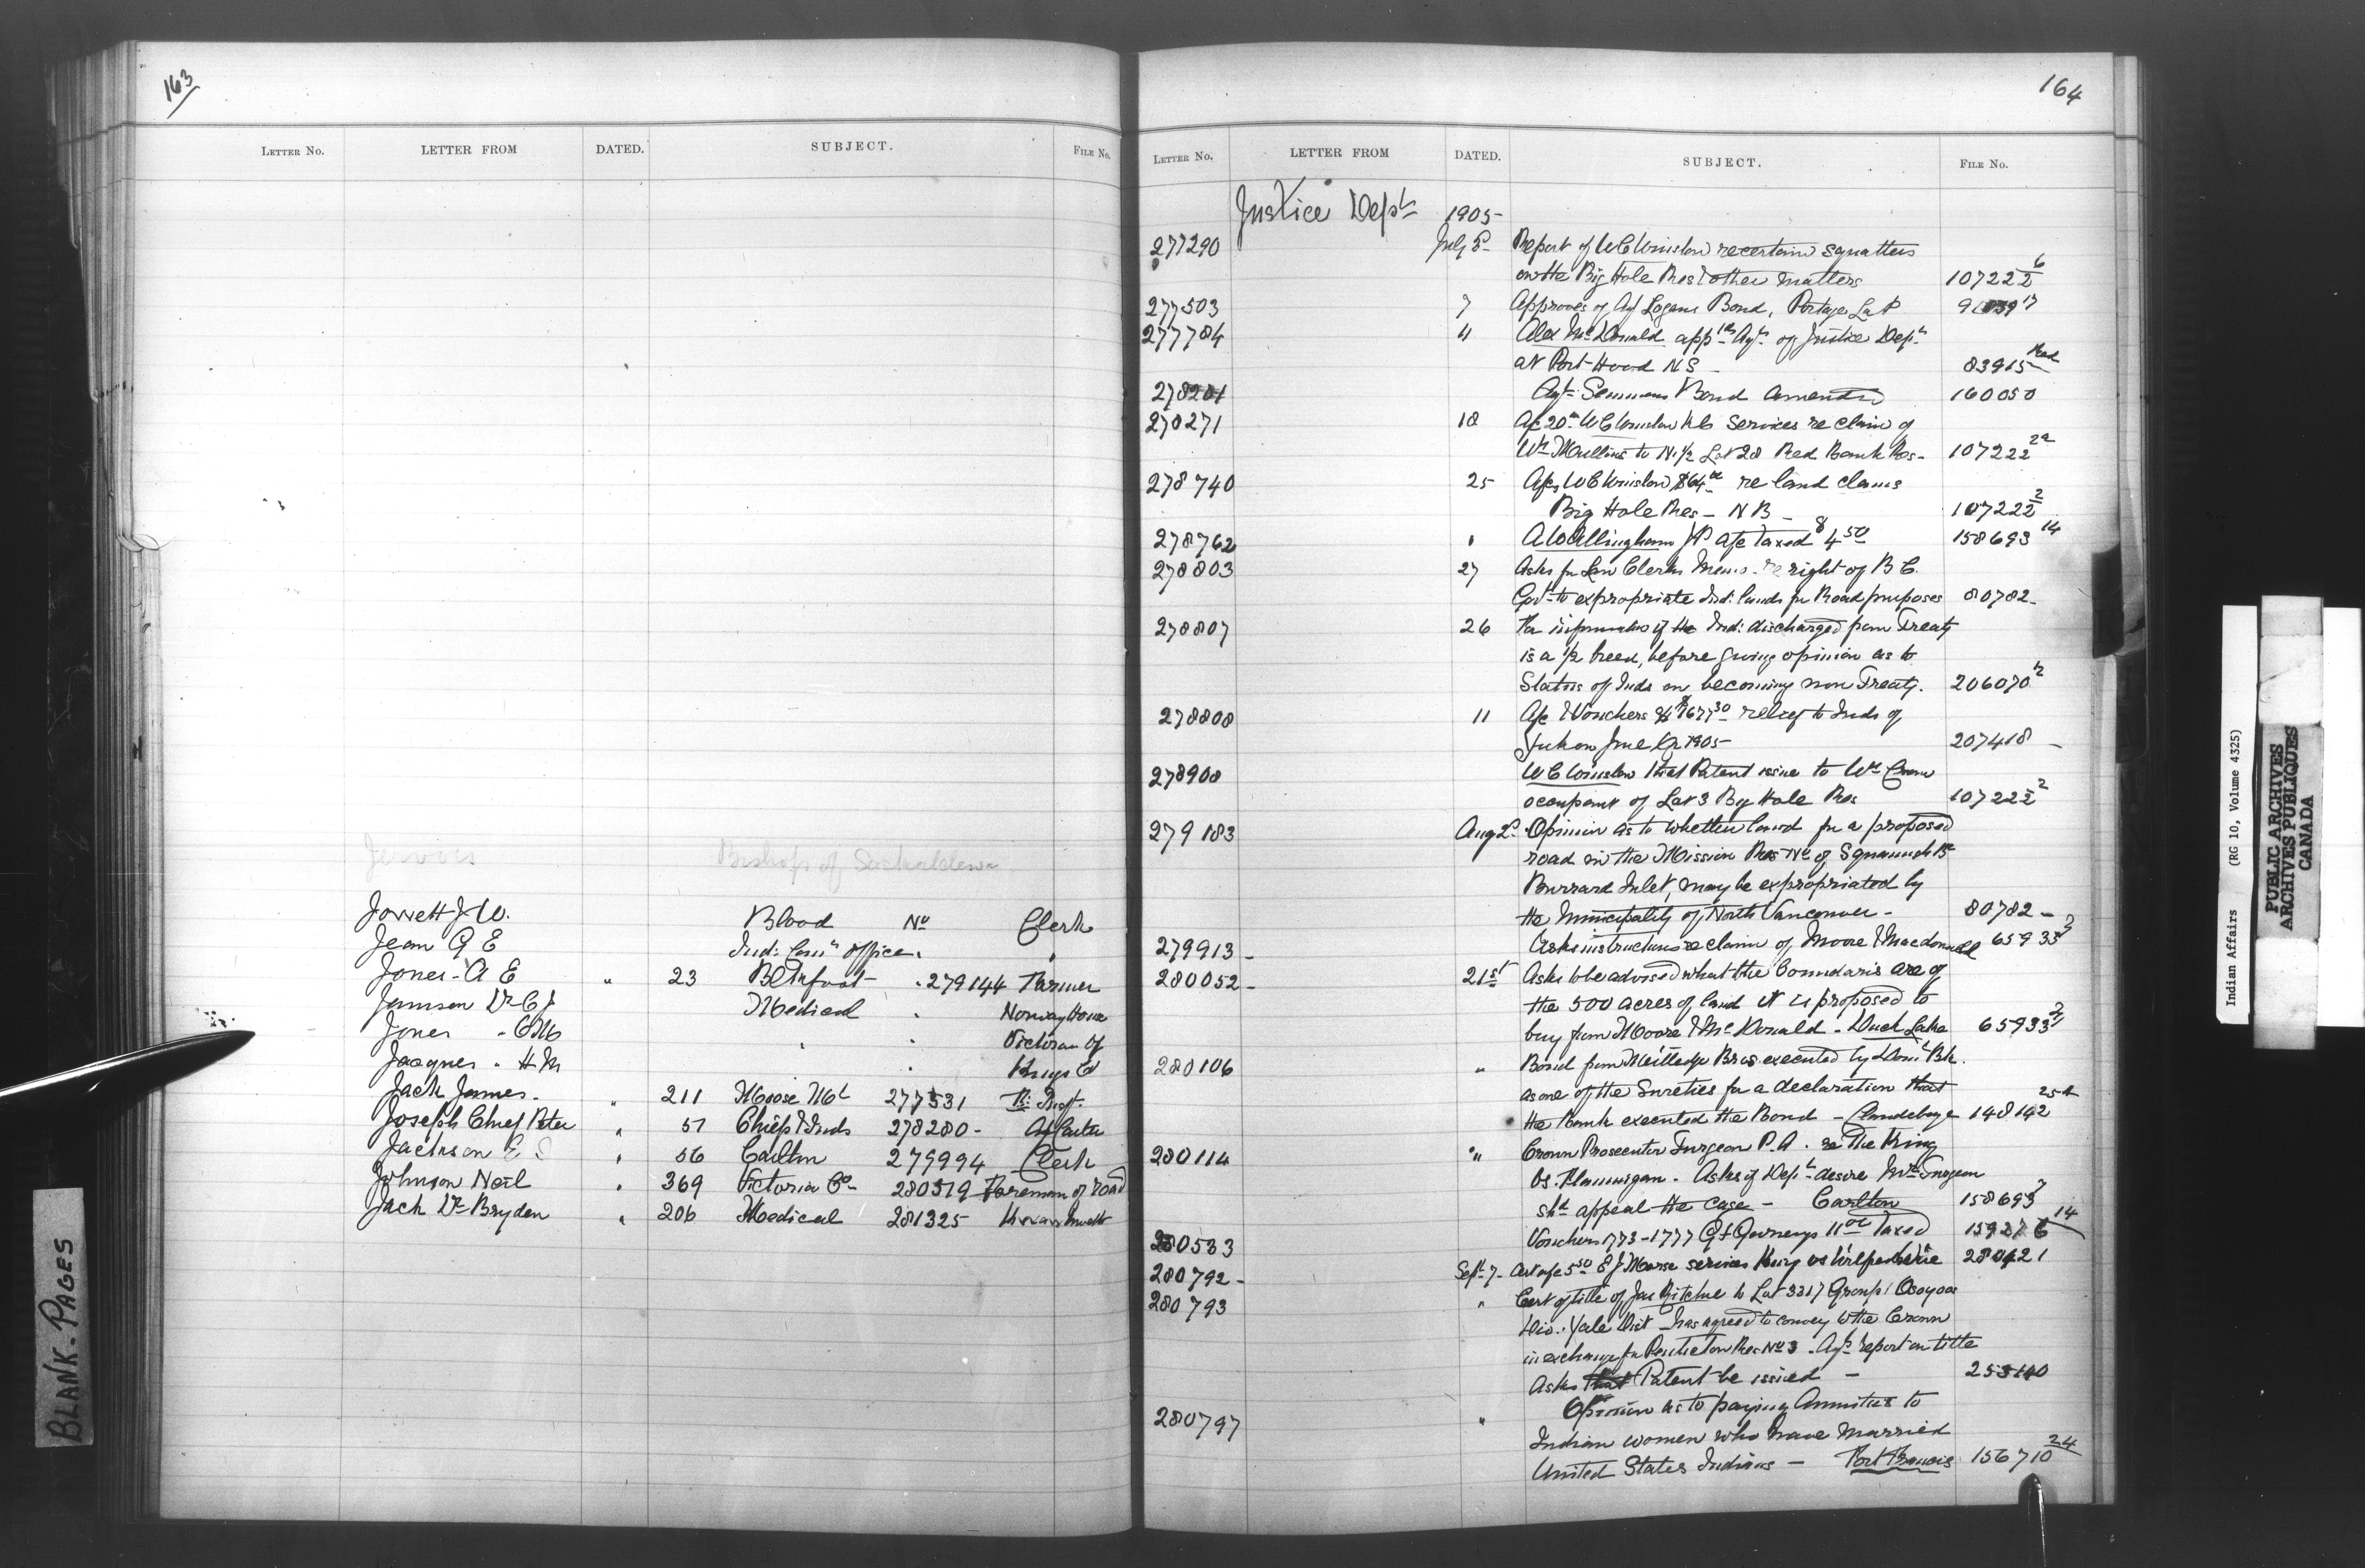 163
LETTER No. LETTER FROM DATED. SUBJECT. FILE No.
Bishop of Saskatchewan
Jowett J. W. Blood No Clerk
Jean G E Ind: Com office. "
Jones - A E " 23 Blkfoot - . 279144 Farmer
Jamson Dr C J Medical . Norway House
Jones - C M " . Victoria
Jacques - H M . .
Jack James - " 211 Moose Mt 277531
Joseph Chief Peter " 57 Chief & Inds 278280 -
Jackson E S " 56 Carlton 279994 Clerk
Johnson Neil " 369 Victoria Co - 280519 Foreman of road
Jack Dr Bryden " 206 Medical 281325
164
LETTER No. LETTER FROM DATED. SUBJECT. FILE No.
Justice Dept 1905 -
277290 July 5 - Report of W C Winslow re certain squatters
on the Big Hole Res & other matters 107222 6/2
277503 7 Approves of Agt Logans Bond, Portage La P
277784 11 Alex McDonald app Agt of Justice Dept
at Port Hood N S - 83915
278201 Agt Semmens Bond amended 160050
278271 18 A/c 20 W C Winslow services re claim of
Wm Mullins to N. 1/2 Lot 28 Red Bank Res - 107222
278740 25 A/c W C Winslow $64 re land claims
Big Hole Res - N B - 107222 2/2
278762 " A W Allingham JP A/c taxed $4 50 158693 14
278803 27 Asks for Law Clerks Memo - re right of B C.
Govt to expropriate Ind: lands for Road purposes 80782 -
278807 26 For information if the Ind: discharged from Treaty
is a 1/2 breed, before giving opinion as to
Status of Inds on becoming non Treaty. 206070
278808 11 A/c & Vouchers relief to Inds of
Yukon June 1905 - 207418 -
278908 W C Winslow that Patent issue to Wm
occupant of Lot 3 Big Hole Res 107222 2
279183 Aug 2 - Opinion as to whether land for a proposed
road in the Mission Res No of Squamish
Burrard Inlet, may be expropriated by
the Municipality of North Vancouver - 80782 -
279913 - Asks instructions re claim of Moore & Macdonald 65933
280052 - 21st Asks to be advised what the boundaries are of
the 500 acres of land it is proposed to
buy from Moore & McDonald - Duck Lake 65933
280106 " Bond from Bros executed by Dom Bk.
as one of the Sureties for a declaration that
the Bank executed the Bond - Clandeboye 148142
280114 " Crown Prosecutor Turgeon P. A. re The King
vs. Flannigan - Asks if Dept desire Mr Turgeon
shd appeal the case - Carlton 158693
280533 Vouchers 1773 - 1777 taxed
280792 - Sept 7 - Cert a/c 5 50 E J Morse services King vs
280793 " Cert of title of Jas Ritchie to Lot 3217 Group 1 Osoyoos
Div. Yale Dist - has agreed to convey to the Crown
in exchange for Penticton Res No 3 - report on title
Asks that Patent be issued -
280797 " Opinion as to paying Annuities to
Indian women who have married
United States Indians - Fort Francis 156710 24
BLANK - PAGES
Indian Affairs (RG 10, Volume 4325)
PUBLIC ARCHIVES
ARCHIVES PUBLIQUES
CANADA